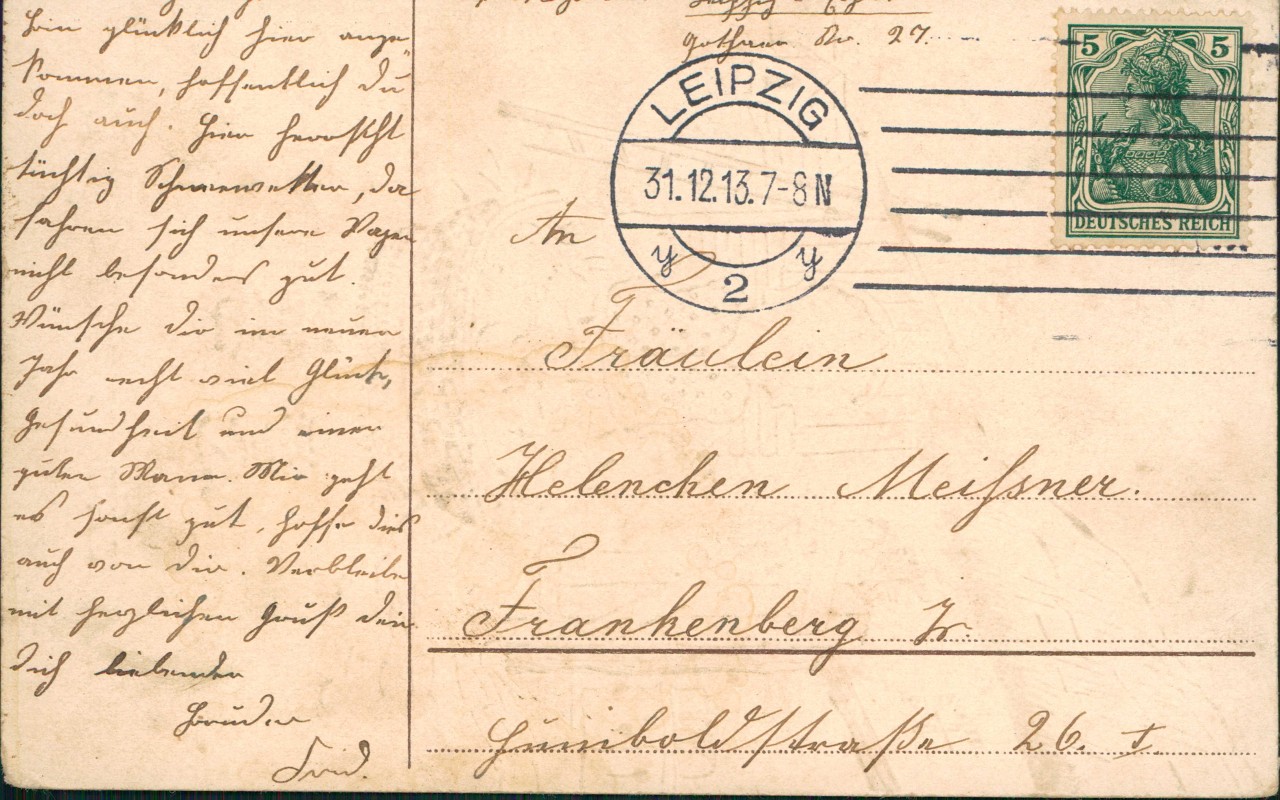 bin glücklich hier ange-
kommen, hoffentlich du
doch auch. Hier herrscht
tüchtig Schneewetter, da
fahren sich unsere Wagen
nicht besonders gut.
Wünsche dir im neuen
Jahr recht viel Glück,
Gesundheit und einen
guten Mann. Mir geht
es sonst gut, hoffe dies
auch von dir. Verbleibe
mit herzlichen Gruß dein
dich liebender
Bruder
Leipzig
Gothaer Str. 27.
LEIPZIG
31.12.13.7-8N
y 2 y
5 5
DEUTSCHES REICH
An
Fräulein
Helenchen Meißner.
Frankenberg
Humboldstraße 26. I.